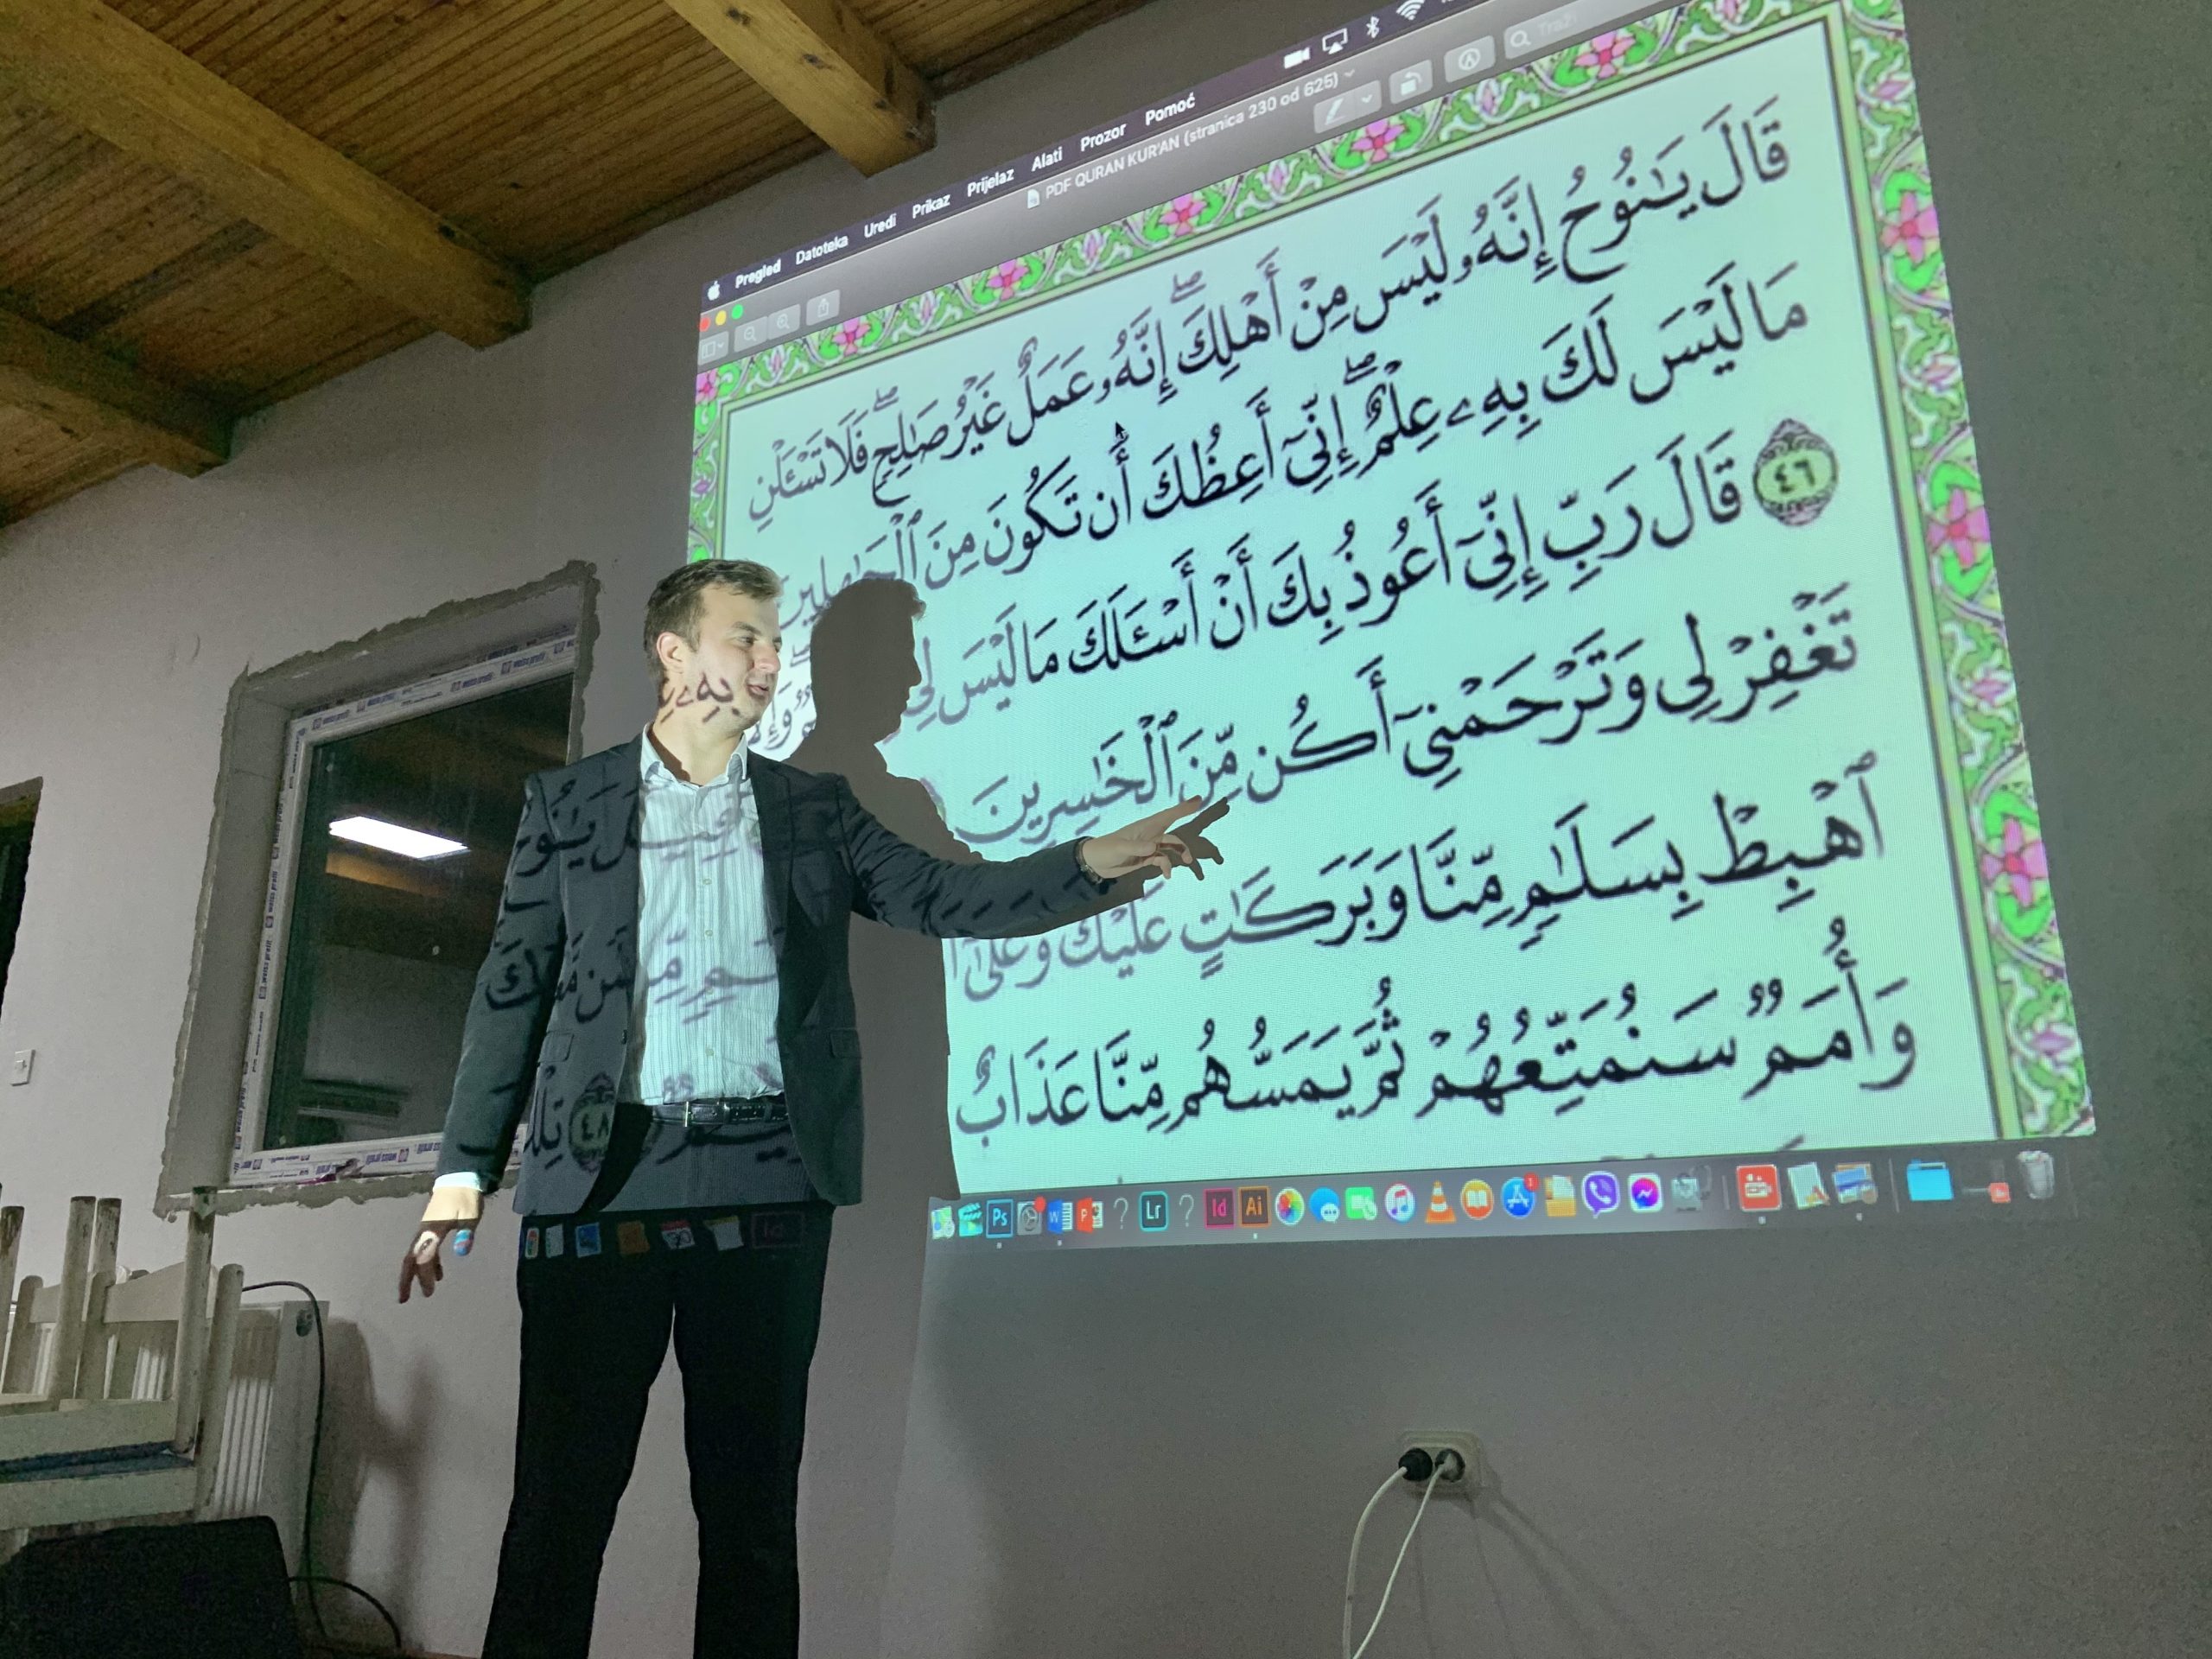 Pregled Datoteka Uredi Prikaz Prijelaz Alati Prozor Pomoć
PDF QURAN KUR'AN (stranica 230 od 625)
Traži
قَالَ يَـٰنُوحُ إِنَّهُۥ لَيْسَ مِنْ أَهْلِكَ ۖ إِنَّهُۥ عَمَلٌ غَيْرُ صَـٰلِحٍ ۖ فَلَا تَسْـَٔلْنِ
مَا لَيْسَ لَكَ بِهِۦ عِلْمٌ ۖ إِنِّىٓ أَعِظُكَ أَن تَكُونَ مِنَ ٱلْجَـٰهِلِينَ
٤٦ قَالَ رَبِّ إِنِّىٓ أَعُوذُ بِكَ أَنْ أَسْـَٔلَكَ مَا لَيْسَ لِى بِهِۦ
تَغْفِرْ لِى وَتَرْحَمْنِىٓ أَكُن مِّنَ ٱلْخَـٰسِرِينَ يَـٰنُوحُ
ٱهْبِطْ بِسَلَـٰمٍ مِّنَّا وَبَرَكَـٰتٍ عَلَيْكَ وَعَلَىٰٓ مِّمَّن مَّعَكَ
وَأُمَمٌ سَنُمَتِّعُهُمْ ثُمَّ يَمَسُّهُم مِّنَّا عَذَابٌ ٤٨ تِلْكَ
Ps W P ? Lr ? Id Ai 1
Id